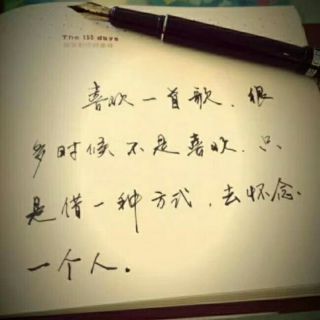 The 153 days
喜欢一首歌.很
多时候不是喜欢.只
是借一种方式.去怀念.
一个人.